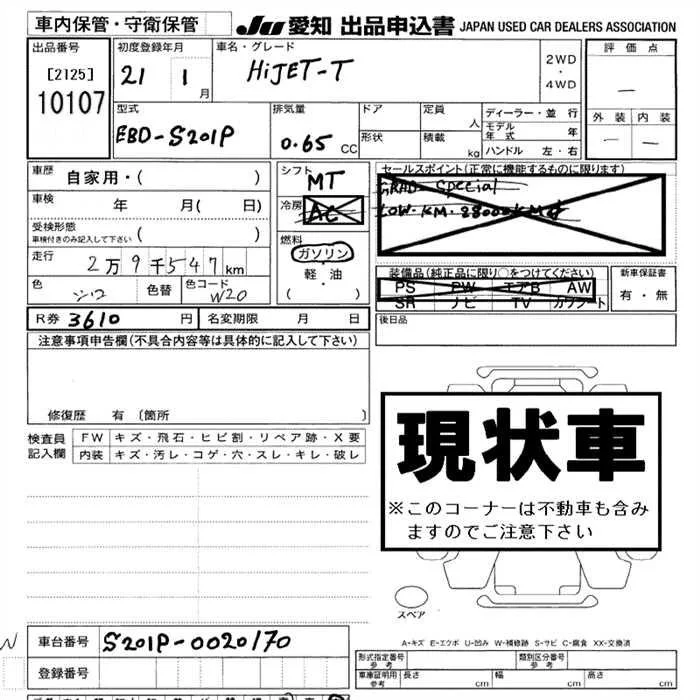 車内保管・守衛保管 JU 愛知 出品申込書 JAPAN USED CAR DEALERS ASSOCIATION
出品番号 初度登録年月 車名・グレード 評価点
[2125] 21 1月 HiJET-T 2WD・4WD —
10107
型式 排気量 ドア 定員 人 ディーラー・並行 外装 内装
EBD-S201P 0.65 CC 形状 積載 kg モデル年式 年 — —
ハンドル 左・右
車歴 自家用・( ) シフト MT セールスポイント(正常に機能するものに限ります)
車検 年 月( 日) 冷房 AC Special
受検形態 LOW・KM・28000KM
車検付きのみ記入して下さい ( ) 燃料
走行 2万9千547km ガソリン
軽・油
( )
装備品(純正品に限り○をつけてください) 新車保証書
色 シロ 色替 色コード W20 PS PW エアB AW 有・無
SR ナビ TV カワシート
R券 3610 円 名変期限 月 日 後日品
注意事項申告欄(不具合内容等は具体的に記入して下さい)
修復歴 有 (箇所 )
検査員記入欄 FW キズ・飛石・ヒビ割・リペア跡・X要
内装 キズ・汚レ・コゲ・穴・スレ・キレ・破レ
現状車
※このコーナーは不動車も含み
ますのでご注意下さい
スペア
A-キズ E-エクボ U-凹み W-補修跡 S-サビ C-腐食 XX-交換済
車台番号 S201P-0020170
形式指定番号 参考 類別区分番号 参考
登録番号 車庫証明用 参考 長さ cm 幅 cm 高さ cm